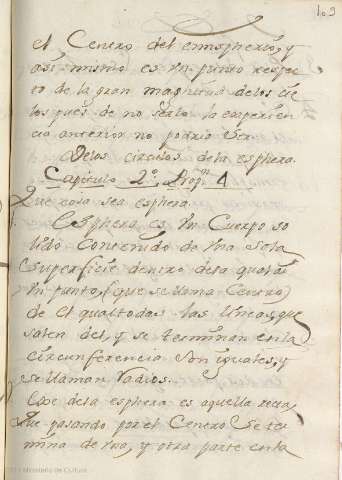 103
el Centro del emispherio, y
asi mismo es un punto respec
to de la gran magnitud delos cie
los pues de no serlo la experien
cia anterior no podria ser.
Delos circulos dela esphera.
Capitulo 2º. Propⁿ 1
Que cosa sea esphera.
Esphera es un Cuerpo so
lido Contenido de una Sola
Superficie dentro dela qual ai
un punto, (que se llama Centro)
de el qual todas las lineas que
salen del, y se terminan en la
circunferencia son iguales, y
se llaman radios.
Exe dela esphera es aquella recta,
que pasando por el Centro se ter
mina de una, y otra parte en la
Ministerio de Cultura